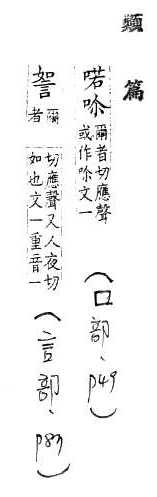 類篇
喏
爾者切應聲
或作 文一
(口部、p49)
爾者
切應聲又人夜切
如也文一重音一
(言部、p83)